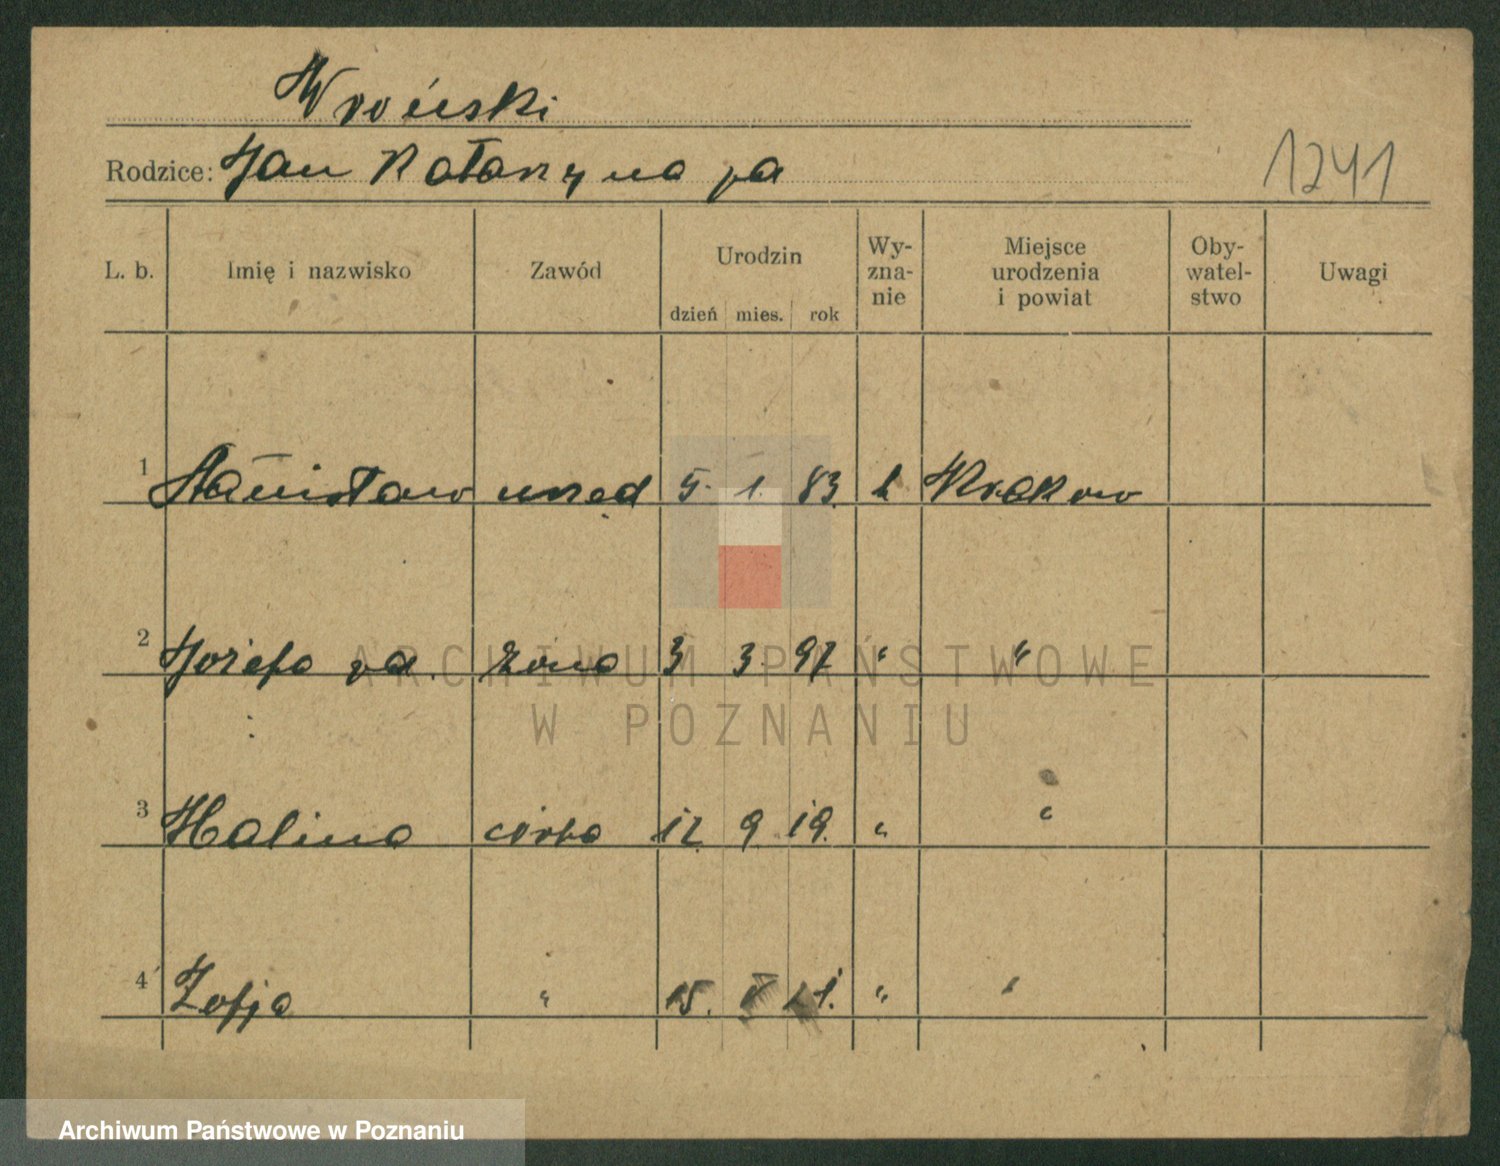 Wroński
Rodzice: Jan Katarzyna
1241
L. b. Imię i nazwisko Zawód Urodzin Wy- Miejsce Oby- Uwagi
zna- urodzenia watel-
nie i powiat stwo
dzień mies. rok
1 Stanisław urzęd 5. 1. 83 Krakow
2 Józefa żona 3 3. 97 " "
ARCHIWUM PAŃSTWOWE
W POZNANIU
3 Halina córka 12. 9. 19. " "
4 Zofja " 15. 21. " "
Archiwum Państwowe w Poznaniu